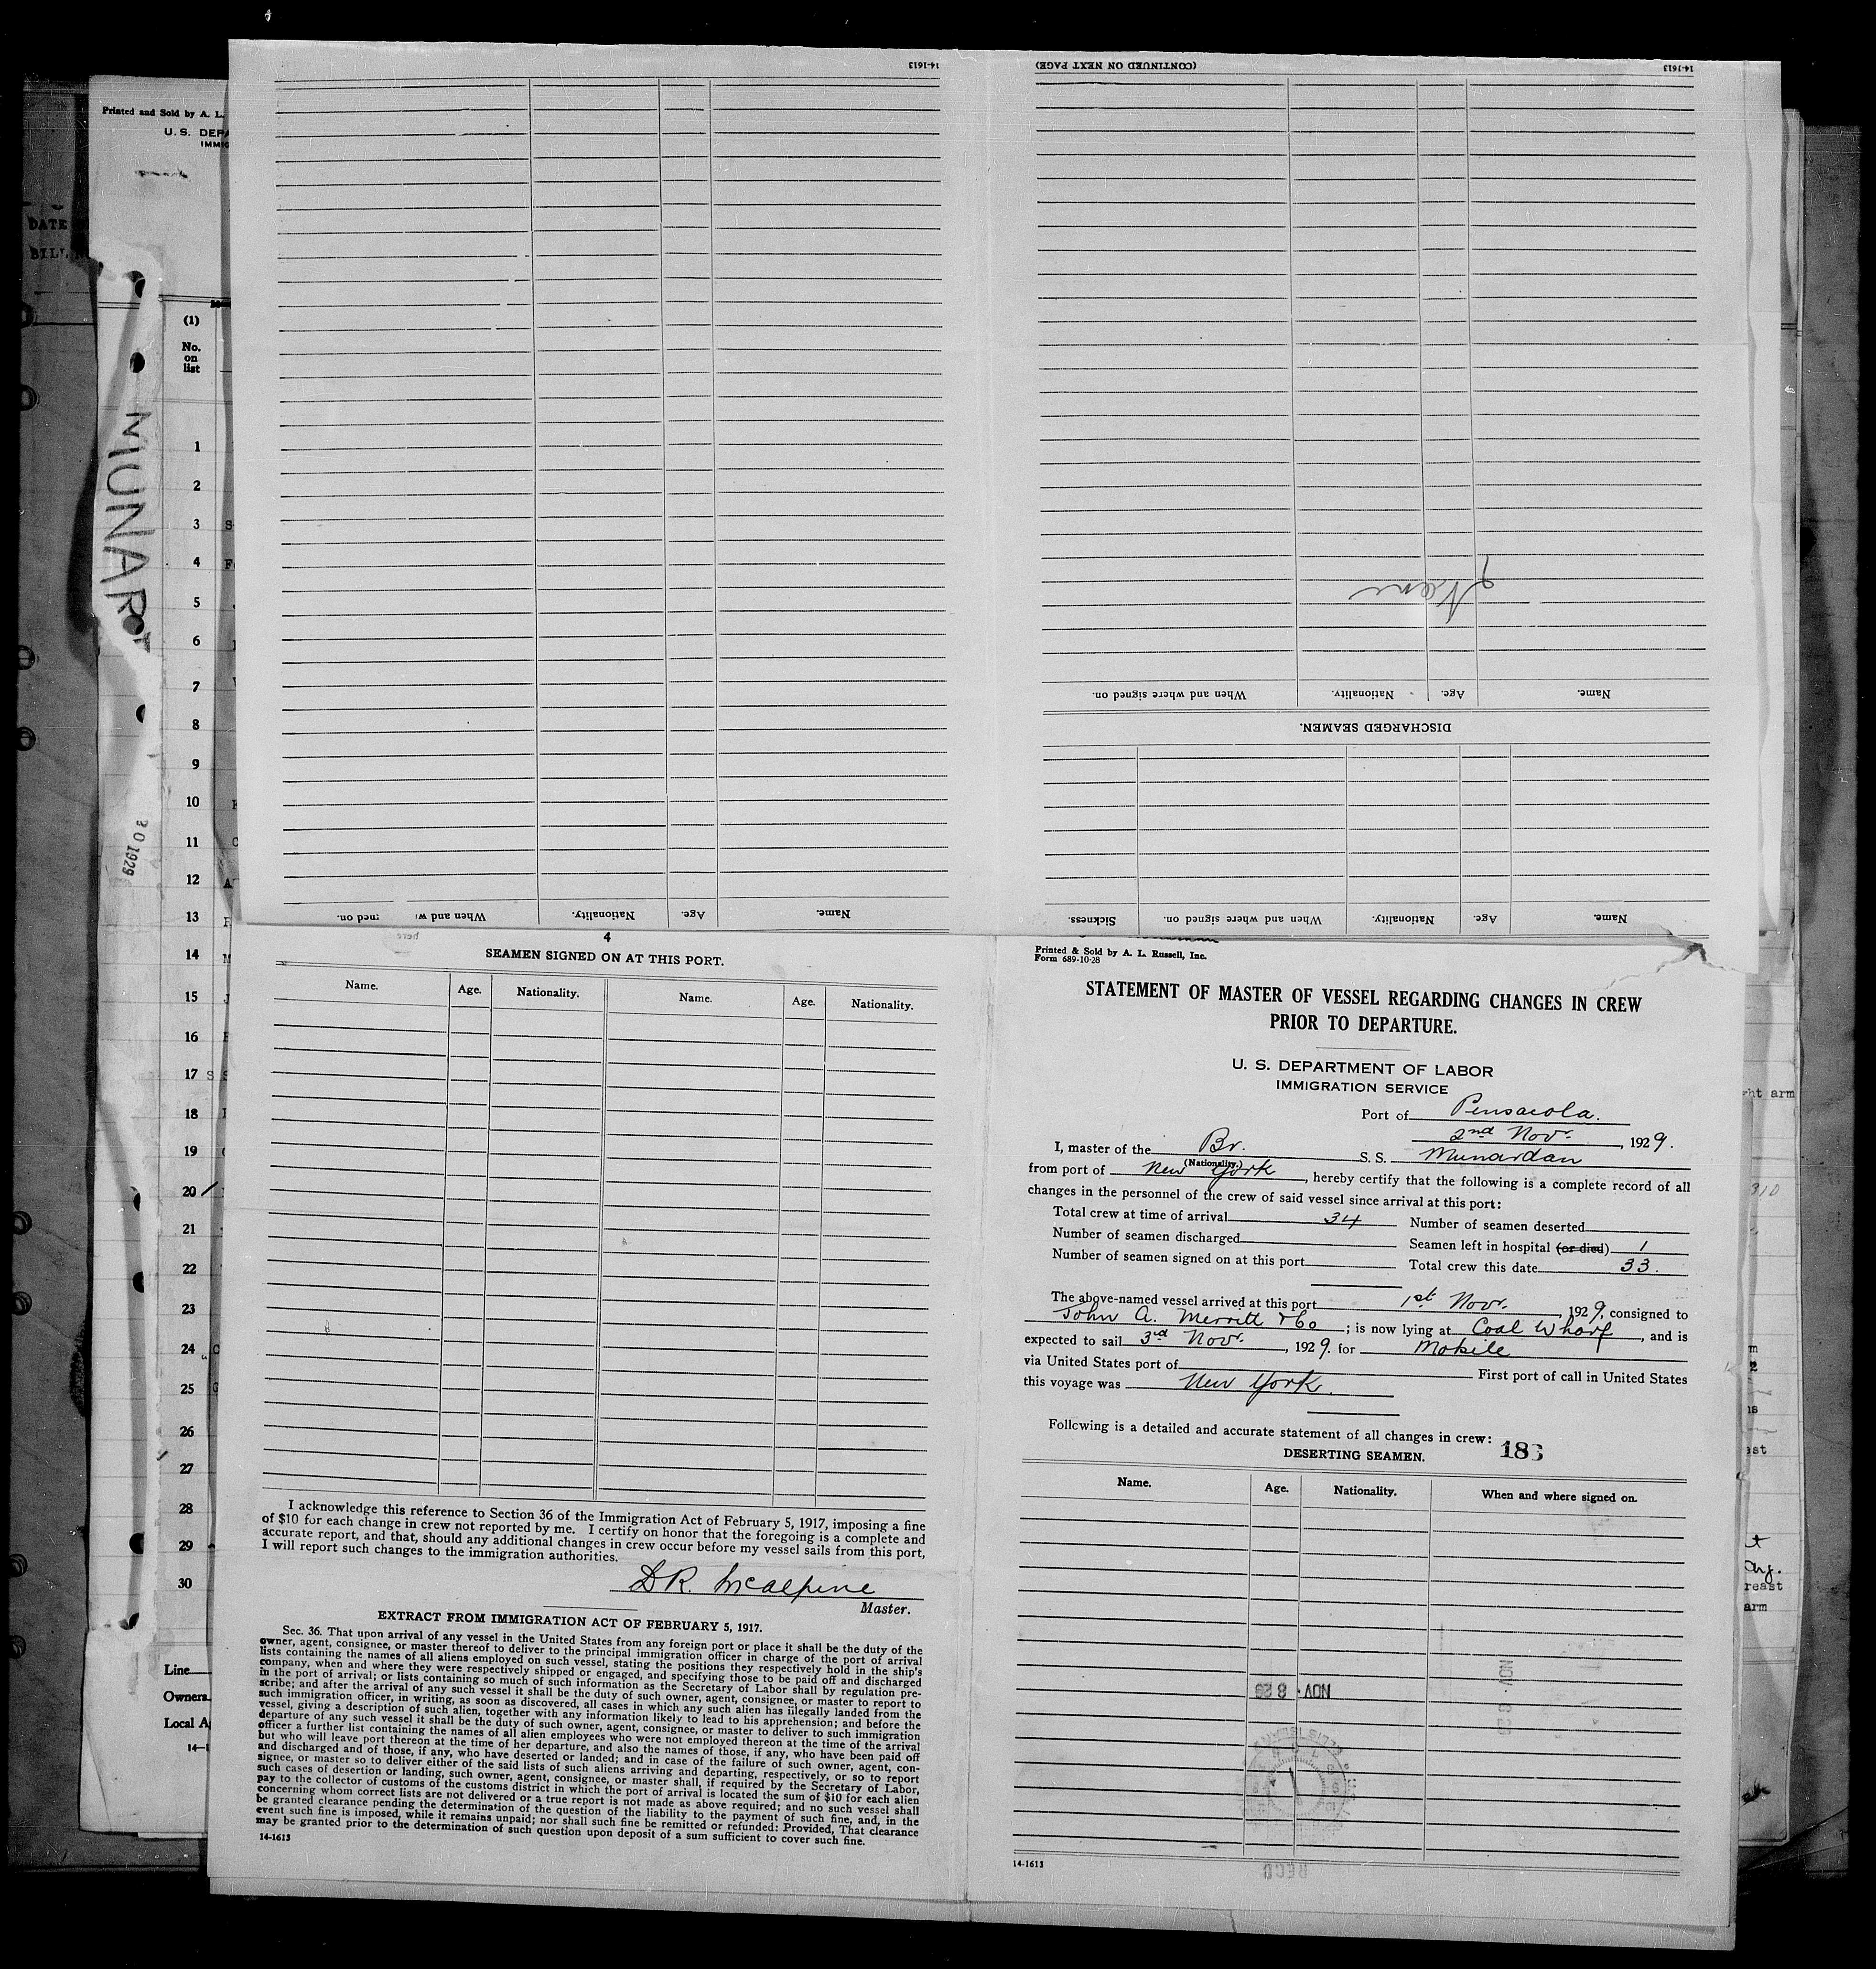 14-1613
(CONTINUED ON NEXT PAGE)
14-1613
None
Name.
Age.
Nationality.
When and where signed on.
DISCHARGED SEAMEN.
Name.
Age.
Nationality.
When and where signed on.
Sickness.
Name.
Age.
Nationality.
When and
ned on.
Printed and Sold by A. L.
U. S. DEPA
IMMIG
DATE
BILL
(1)
No.
on
list
MUNAR
30 1929
1
2
3
4
5
6
7
8
9
10
11
12
13
14
15
16
17
18
19
20
21
22
23
24
25
26
27
28
29
30
Line
Owners
Local A
14-1
4
SEAMEN SIGNED ON AT THIS PORT.
Name. Age. Nationality. Name. Age. Nationality.
I acknowledge this reference to Section 36 of the Immigration Act of February 5, 1917, imposing a fine
of $10 for each change in crew not reported by me. I certify on honor that the foregoing is a complete and
accurate report, and that, should any additional changes in crew occur before my vessel sails from this port,
I will report such changes to the immigration authorities.
D R. McAlpine
Master.
EXTRACT FROM IMMIGRATION ACT OF FEBRUARY 5, 1917.
Sec. 36. That upon arrival of any vessel in the United States from any foreign port or place it shall be the duty of the
owner, agent, consignee, or master thereof to deliver to the principal immigration officer in charge of the port of arrival
lists containing the names of all aliens employed on such vessel, stating the positions they respectively hold in the ship's
company, when and where they were respectively shipped or engaged, and specifying those to be paid off and discharged
in the port of arrival; or lists containing so much of such information as the Secretary of Labor shall by regulation pre-
scribe; and after the arrival of any such vessel it shall be the duty of such owner, agent, consignee, or master to report to
such immigration officer, in writing, as soon as discovered, all cases in which any such alien has illegally landed from the
vessel, giving a description of such alien, together with any information likely to lead to his apprehension; and before the
departure of any such vessel it shall be the duty of such owner, agent, consignee, or master to deliver to such immigration
officer a further list containing the names of all alien employees who were not employed thereon at the time of the arrival
but who will leave port thereon at the time of her departure, and also the names of those, if any, who have been paid off
and discharged and of those, if any, who have deserted or landed; and in case of the failure of such owner, agent, con-
signee, or master so to deliver either of the said lists of such aliens arriving and departing, respectively, or so to report
such cases of desertion or landing, such owner, agent, consignee, or master shall, if required by the Secretary of Labor,
pay to the collector of customs of the customs district in which the port of arrival is located the sum of $10 for each alien
concerning whom correct lists are not delivered or a true report is not made as above required; and no such vessel shall
be granted clearance pending the determination of the question of the liability to the payment of such fine, and, in the
event such fine is imposed, while it remains unpaid; nor shall such fine be remitted or refunded: Provided, That clearance
may be granted prior to the determination of such question upon deposit of a sum sufficient to cover such fine.
14-1613
Printed & Sold by A. L. Russell, Inc.
Form 689-10-28
STATEMENT OF MASTER OF VESSEL REGARDING CHANGES IN CREW
PRIOR TO DEPARTURE.
U. S. DEPARTMENT OF LABOR
IMMIGRATION SERVICE
Port of Pensacola.
2nd Nov., 1929.
I, master of the Br. S. S. Munardan
(Nationality.)
from port of New York, hereby certify that the following is a complete record of all
changes in the personnel of the crew of said vessel since arrival at this port:
Total crew at time of arrival 34 Number of seamen deserted
Number of seamen discharged Seamen left in hospital (or died) 1
Number of seamen signed on at this port Total crew this date 33.
The above-named vessel arrived at this port 1st Nov., 1929, consigned to
John A. Merritt & Co; is now lying at Coal Wharf, and is
expected to sail 3rd Nov., 1929. for Mobile
via United States port of First port of call in United States
this voyage was New York.
Following is a detailed and accurate statement of all changes in crew:
DESERTING SEAMEN.
183
Name. Age. Nationality. When and where signed on.
NOV. 8 29
RECD
14-1613
ht arm
310
reast
arm